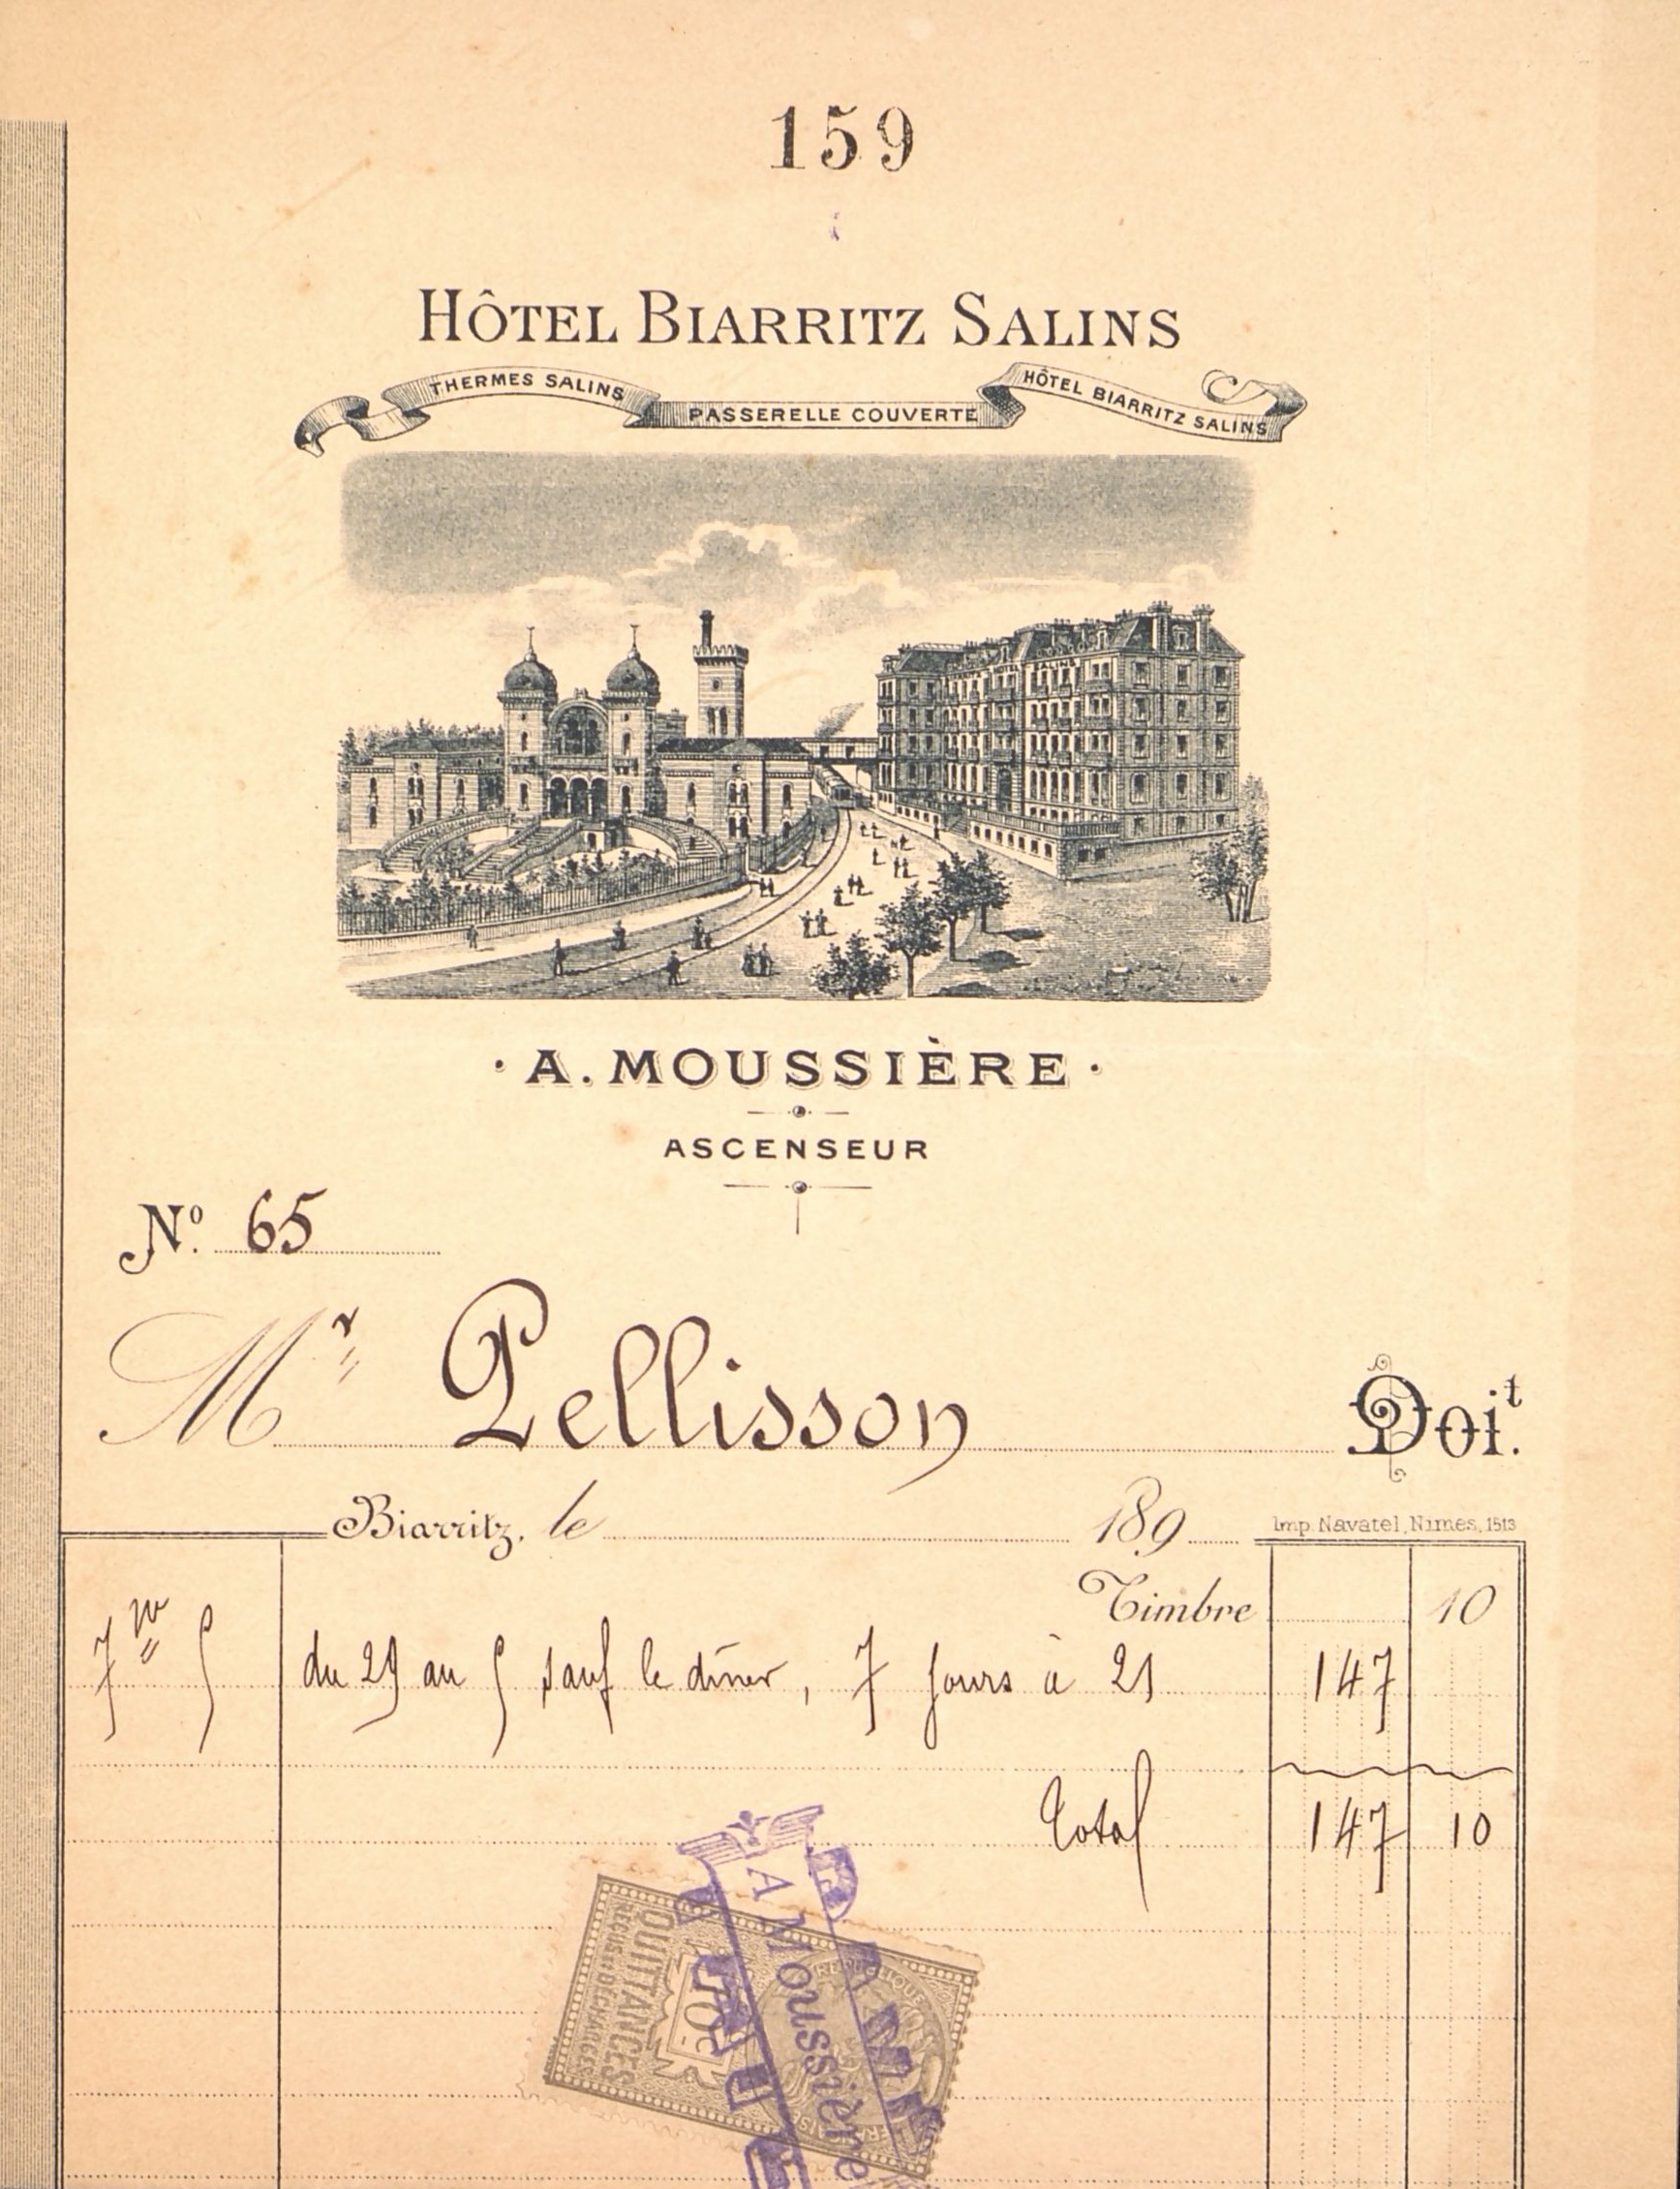 159
HÔTEL BIARRITZ SALINS
THERMES SALINS
PASSERELLE COUVERTE
HÔTEL BIARRITZ SALINS
· A. MOUSSIÈRE ·
ASCENSEUR
Nº. 65
Mr Pellisson Doit.
Biarritz, le 189
Imp. Navatel, Nimes, 1513
Timbre 10
du 29 au 5 sauf le dîner, 7 jours à 21 147
Total 147 10
QUITTANCES
10c
A Moussière